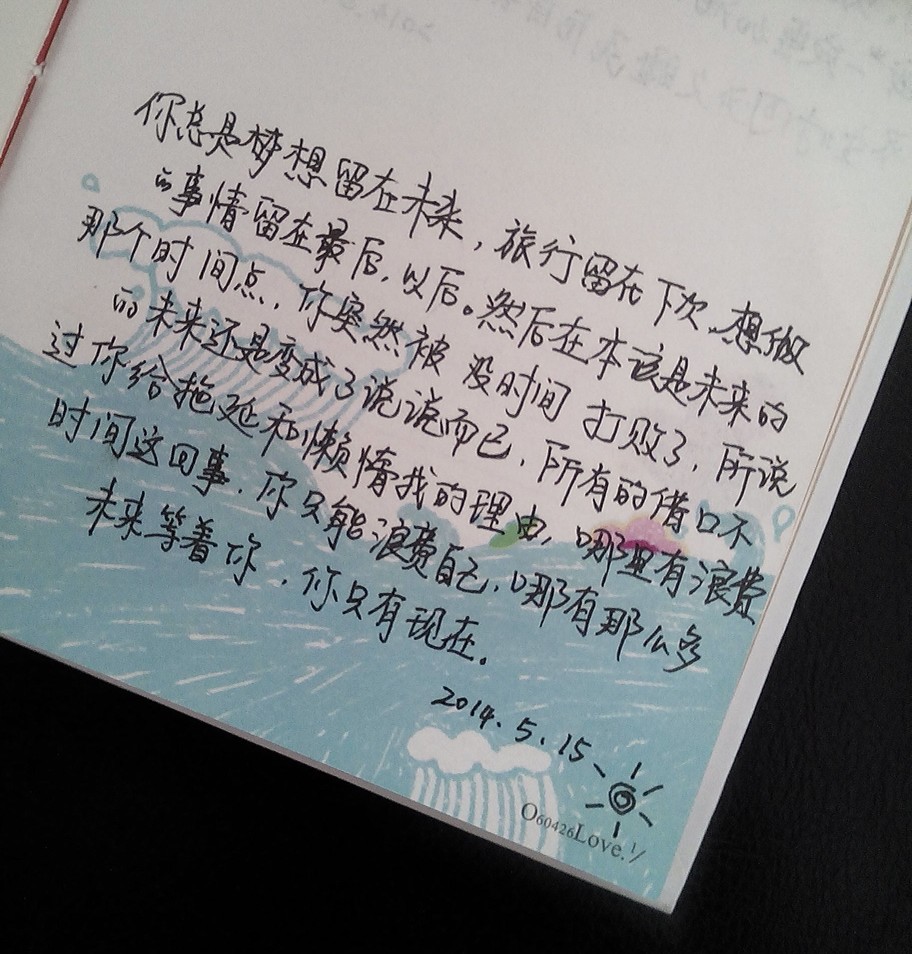 你总是梦想留在未来，旅行留在下次、想做
的事情留在最后，以后。然后在本该是未来的
那个时间点，你突然被 没时间 打败了，所说
的未来还是变成了说说而已，所有的借口不
过你给拖延和懒惰找的理由，哪里有浪费
时间这回事，你只能浪费自己，哪有那么多
未来等着你，你只有现在。
2014.5.15
O60426Love.